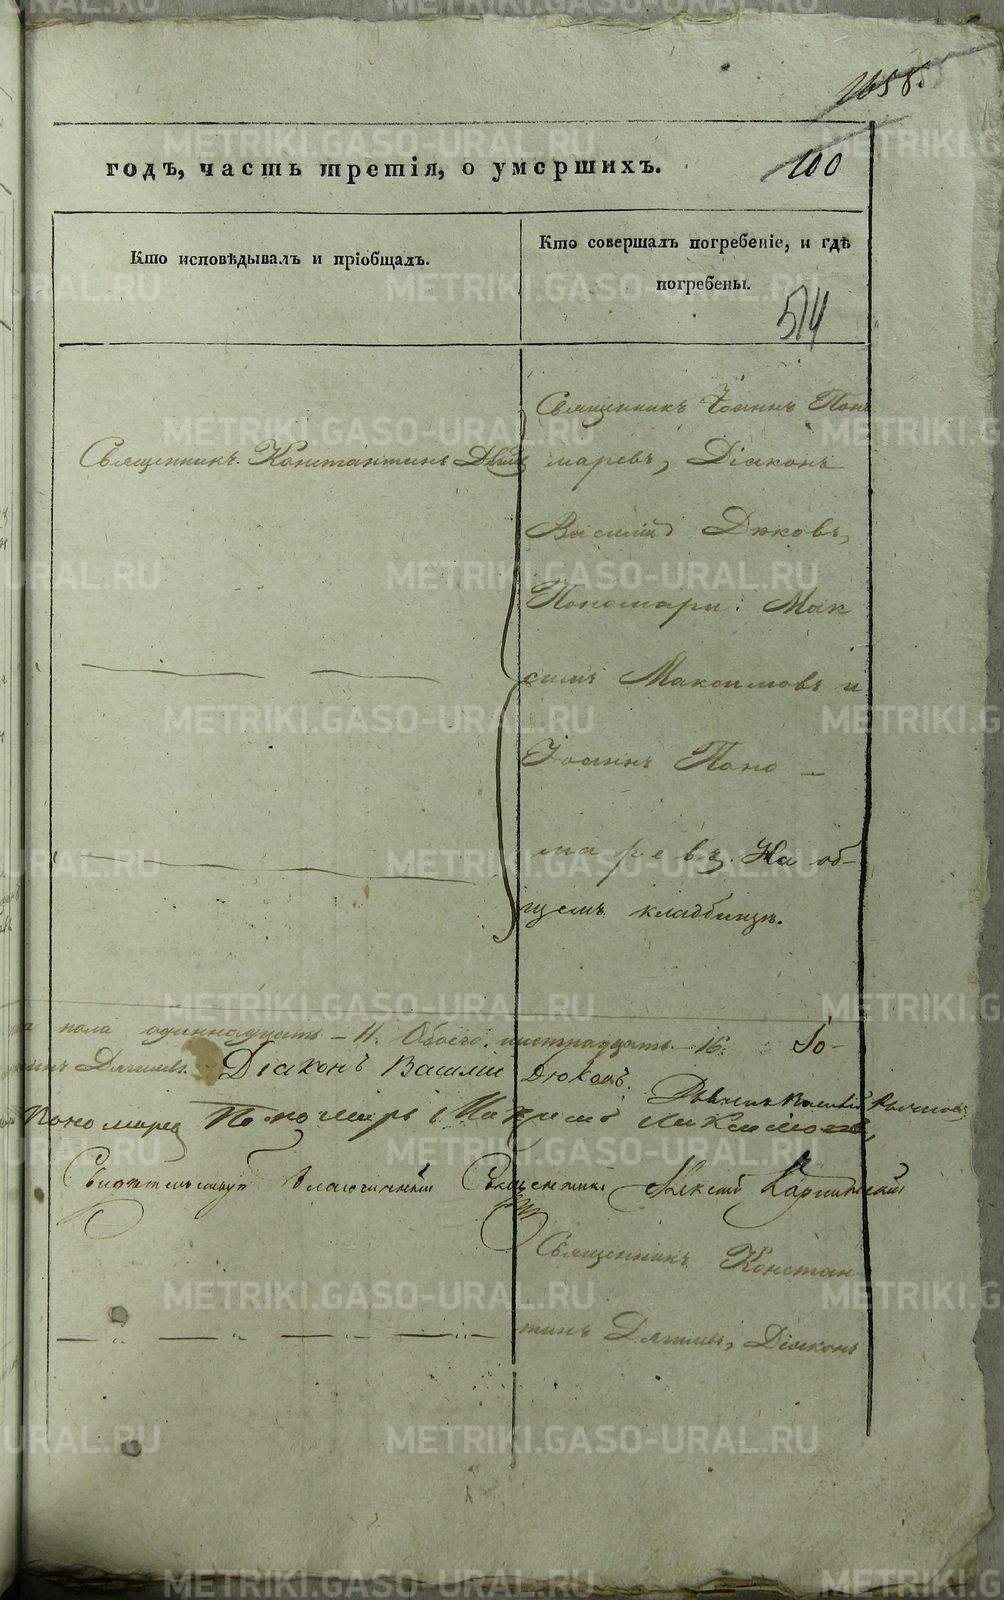 1058
годъ, часть третія, о умершихъ.
100
Кто исповѣдывалъ и пріобщалъ.
Кто совершалъ погребеніе, и гдѣ
погребены.
514
Священникъ Іоаннъ Поно
Священникъ Константинъ
маревъ, Діаконъ
Василій Дюковъ,
Пономари: Мак
симъ Максимовъ и
Іоаннъ Поно –
маревъ. На об-
щемъ кладбищѣ.
пола одиннадцать – 11. Обоего: шестнадцать – 16.
Діаконъ Василій Дюковъ
Пономаревъ Пономарь Максимъ Максимовъ,
Свидѣтельствуетъ Благочинный Священникъ Алексій
Священникъ Констан
тинъ Діаконъ
METRIKI.GASO-URAL.RU